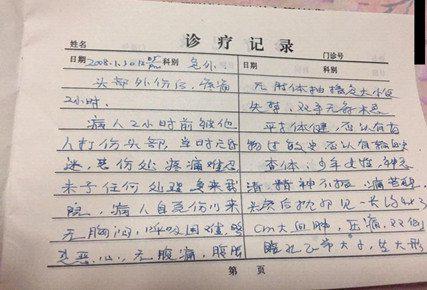 诊疗记录
姓名 门诊号
日期 2008.1.30 科别 急外
头部外伤后,疼痛
2小时.
病人2小时前被他
人打伤头部,当时无昏
迷,自伤处疼痛难忍
未予任何处理急来我
院,病人自受伤以来
无胸闷,呼吸困难,略
觉恶心,无腹痛,腹胀
日期 科别
无肢体抽搐及大小便
失禁,双手无麻木
平时体健,否认有药
物过敏史否认有
查体:少年女性,神志
清,精神不振,痛苦貌,
头顶后枕部见一长约4×3
cm大血肿,压痛,双侧
瞳孔等大,
第 页